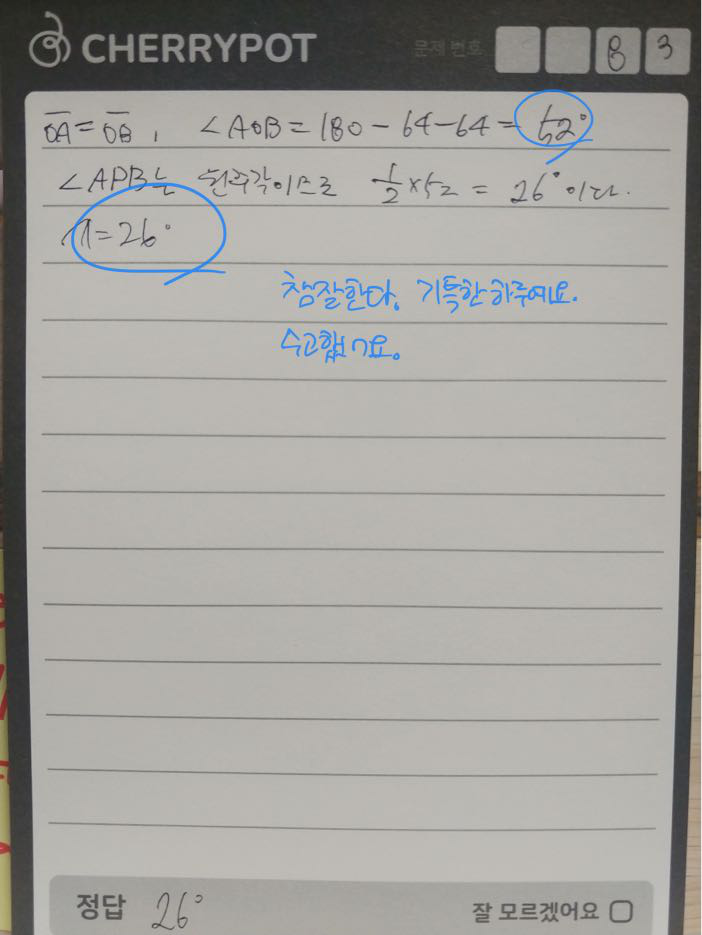 CHERRYPOT 문제 번호 8 3
OA = OB, ∠AOB = 180 - 64 - 64 = 52°
∠APB는 원주각이므로 1/2 × 52 = 26° 이다.
x = 26°
참잘한다. 기특한 하루에요.
수고했어요.
정답 26° 잘 모르겠어요